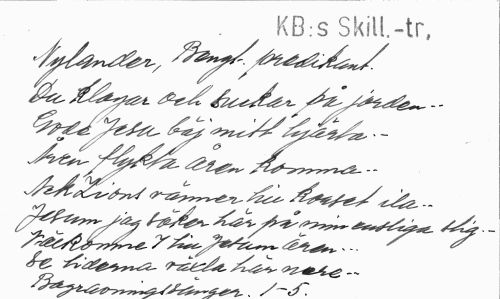 KB:s Skill.-tr,
Nylander, Bengt. predikant.
Du klagar och suckar på jorden --
Gode Jesu böj mitt hjärta --
Åren flykta åren komma --
Ack Zions vänner hu korset ila --
Jesum jag söker här på min ensliga stig --
I hu Jesum ären --
Se tiderna växla här nere --
Begravningssånger. 1-5.